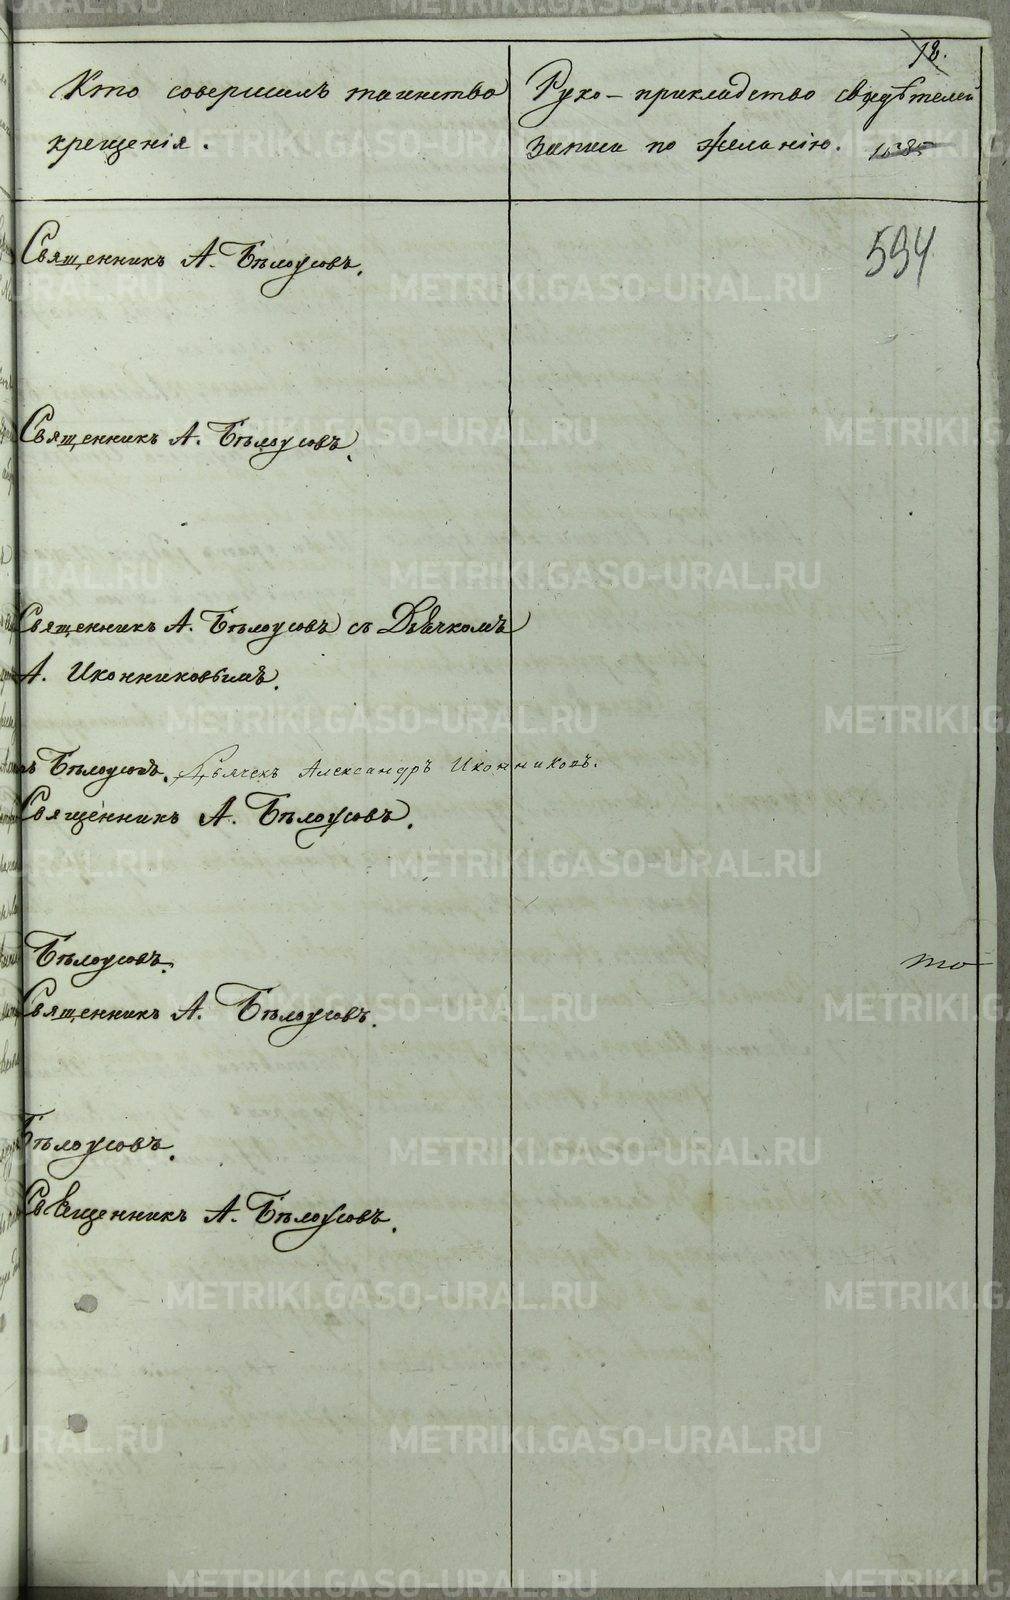 18.
Кто совершилъ таинство
крещенія.
Руко-прикладство свидѣтелей
записи по желанію.
594
Священникъ А. Бѣлоусовъ.
Священникъ А. Бѣлоусовъ.
Священникъ А. Бѣлоусовъ съ Дьячкомъ
А. Иконниковымъ.
Бѣлоусовъ. Дьячекъ Александръ Иконниковъ.
Священникъ А. Бѣлоусовъ.
Бѣлоусовъ.
то
Священникъ А. Бѣлоусовъ.
Бѣлоусовъ.
Священникъ А. Бѣлоусовъ.
METRIKI.GASO-URAL.RU